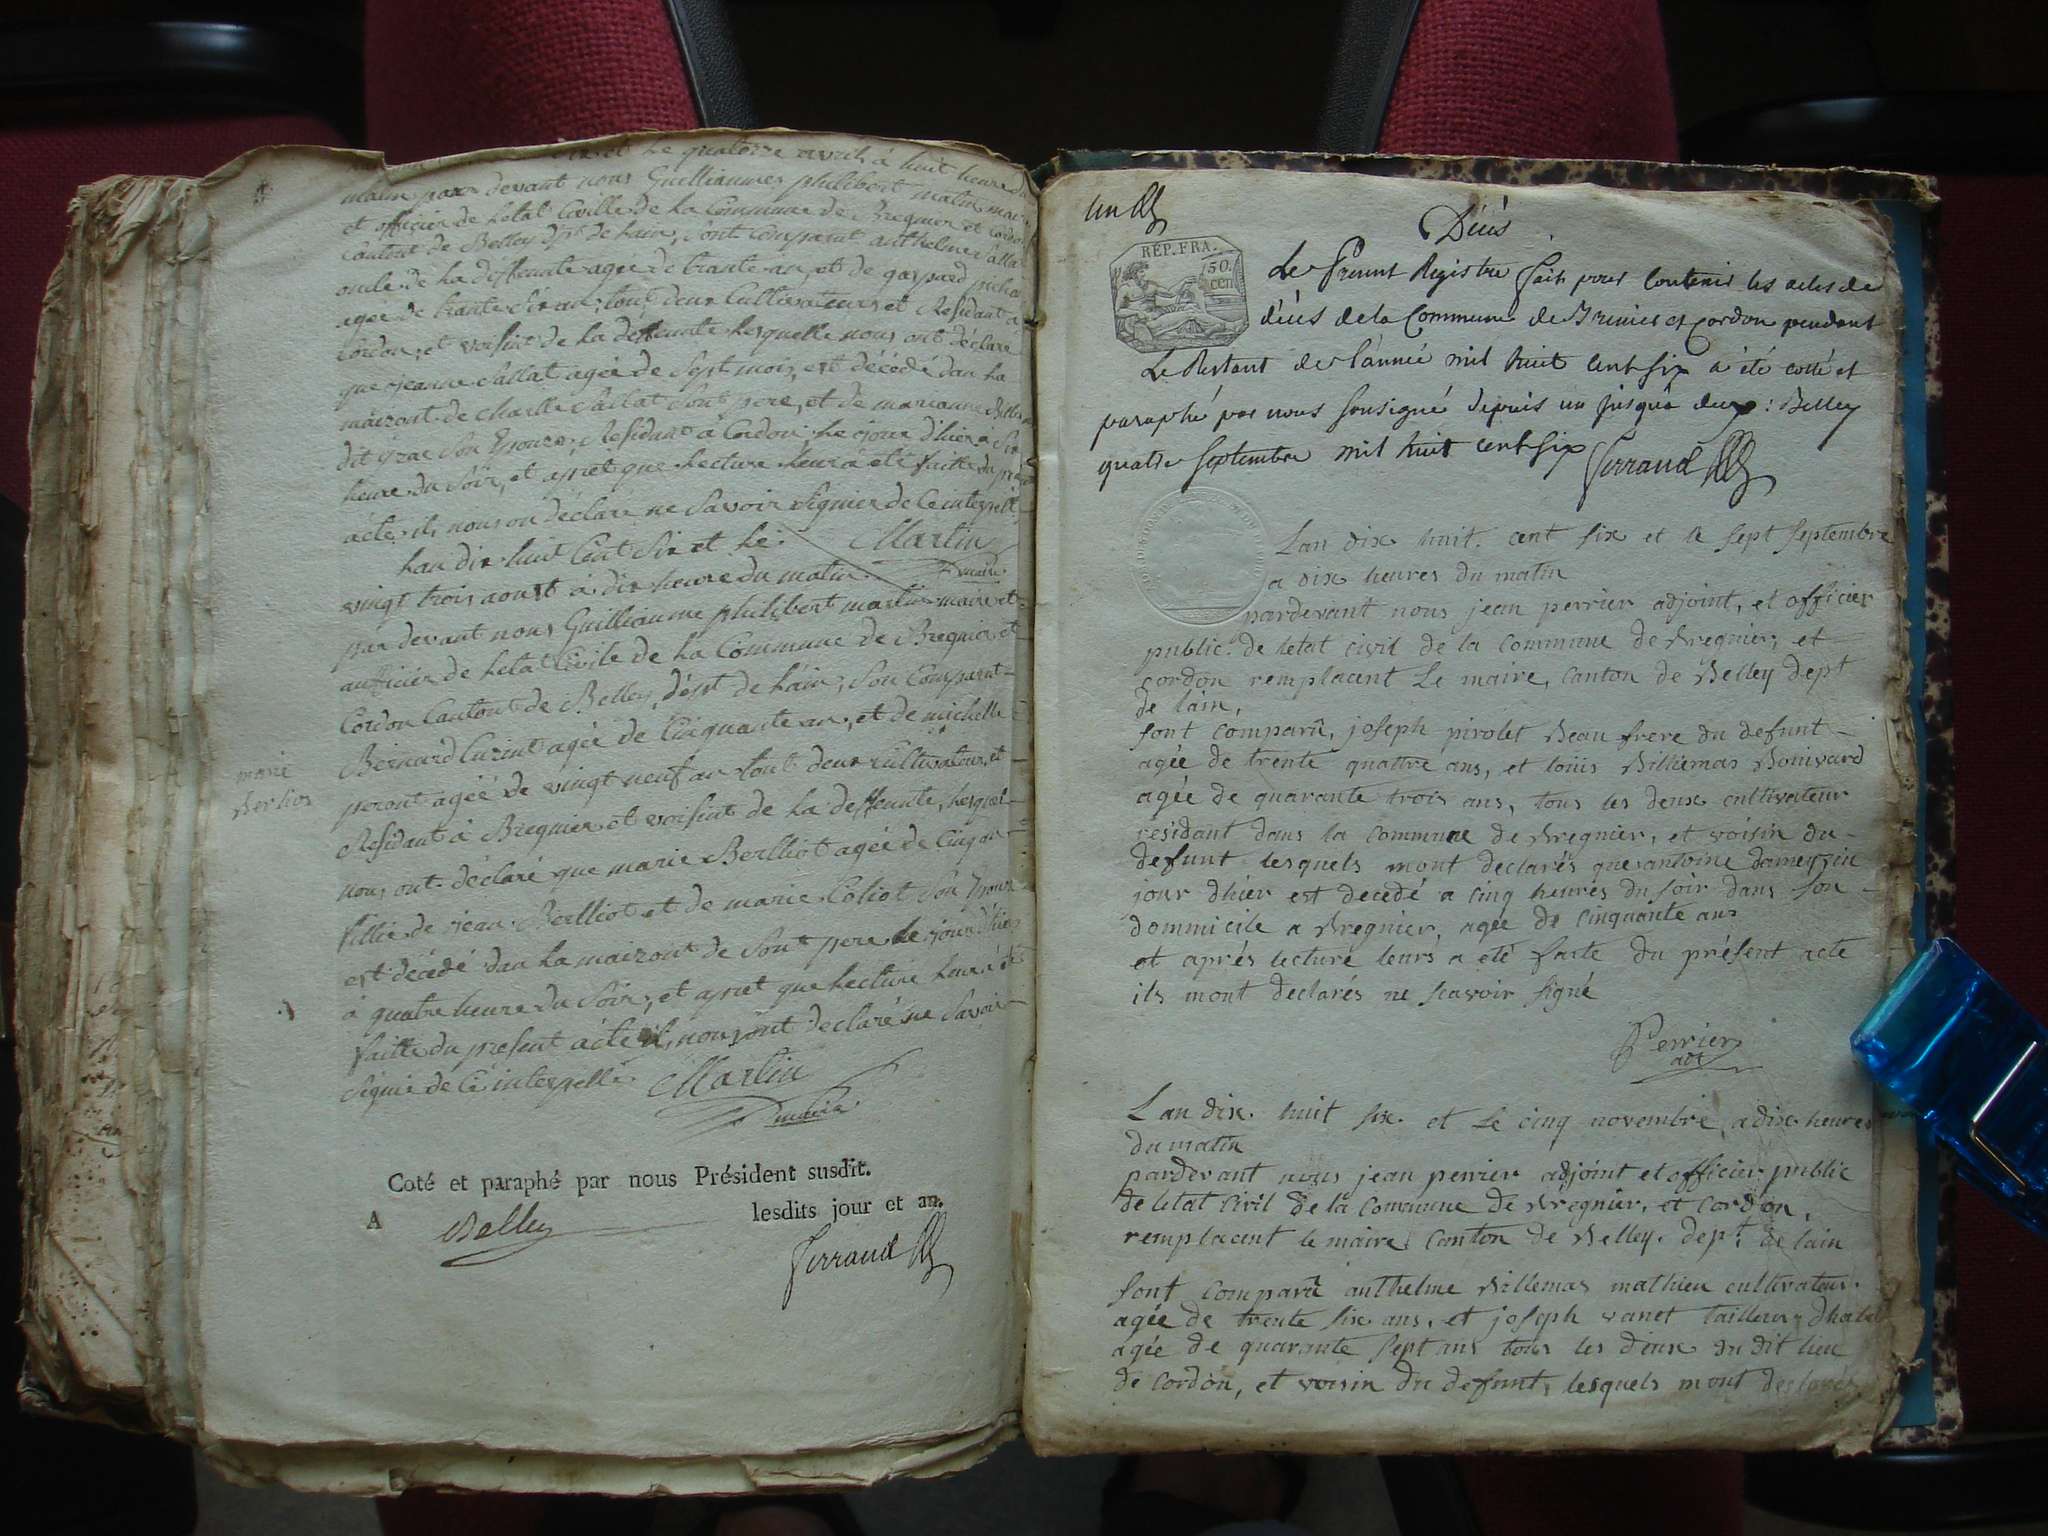 et le quatorze avril à huit heure du
matin par devant nous Guilliaumes philibert martin maire
et officier de letat Civille de la Commune de Bregnier et Cordon
Cantont de Belley dpt de Lain, sont Comparut anthelme Sallat
oncle de la deffeunte agee de trante an et de gaspard
agee de trante six an, tout deux Cultivateurs et Residant a
Cordon, et voisint de la deffeunte lesquelle nous ont declare
que jeanne Sallat agée de Sept mois, est décédé dan la
maizont de charlle Sallat Sont pere, et de marianne
dit Son Epouze Residant à Cordon, le jour d'hier à Six
heure du Soir, et apriet que lecture leur à été faitte du présent
acte, il, nous on déclare ne Savoir Signier de Ce interpellé
Lan dix huit Cent Six et le Martin
maire
vingt trois aoust à dix heure du matin
par devant nous Guilliaume philibert martin maire et
aufficier de letat Civile de la Commune de Bregnier et
Cordon Cantont de Belley, dépt de Lain, Son Comparut
Bernard Curint agée de Cinquante an, et de michelle
peront agée de vingt neuf an tout deux Cultivateur, et
marie
Berlios
Residant à Bregnier et voisint de la deffeunte, lesquel
nous ont déclaré que marie Berlliot agée de Cinq an
fillie de jean Berlliot et de marie Coliot Son Epouze
est décédé dan la maizont de Sont pere le jour d'hier
à quatre heure du Soir, et apriet que Lecture leur à été
faitte du present acte il, nous ont declaré ne Savoir
Signié de Cé interpellé Martin
maire
Coté et paraphé par nous Président susdit.
A Belley lesdits jour et an.
Ferraud
un
Décés
Le Present Registre fait pour Contenir les actes de
décés de la Commune de Brenier et Cordon pendant
Le Restant de l'année mil huit Cent six a été cotté et
paraphé par nous soussigné depuis un jusqu'a deux : Belley
quatre Septembre mil huit cent six Ferraud
Lan dix huit. cent six et le sept septembre
a dix heures du matin
pardevant nous jean perrier adjoint, et officier
public. de letat civil de la commune de Bregnier, et
cordon remplacent Le maire, Canton de Belley dept
de lain,
sont comparû, joseph pirolet Beau frere du defunt
agée de trente quattre ans, et loüis Billiemas Bonivard
agée de quarante trois ans, tous les deux cultivateur
residant dans la commune de Bregnier, et voisin du
defunt lesquels mont declarés que antoine dameyzin
jour dhier est decedé a cinq heures du soir dans son
dommicile a Bregnier, agée de cinquante ans
et aprés lecture leurs a eté faite du présent acte
ils mont declarés ne scavoir signé
Perrier
adt
L an dix huit six et Le cinq novembre, a dix heures
du matin
pardevant nous jean perrier adjoint et officier public
de letat civil de la commune de Bregnier, et cordon,
remplacent le maire Canton de Belley. dept de lain
sont comparû anthelme Billemas mathieu cultivateur.
agée de trente six ans, et joseph vanet tailleur dhabit
agée de quarante sept ans tous les deux du dit lieu
de cordon, et voisin du defunt, lesquels mont declarés
RÉP. FRA.
50.
cen